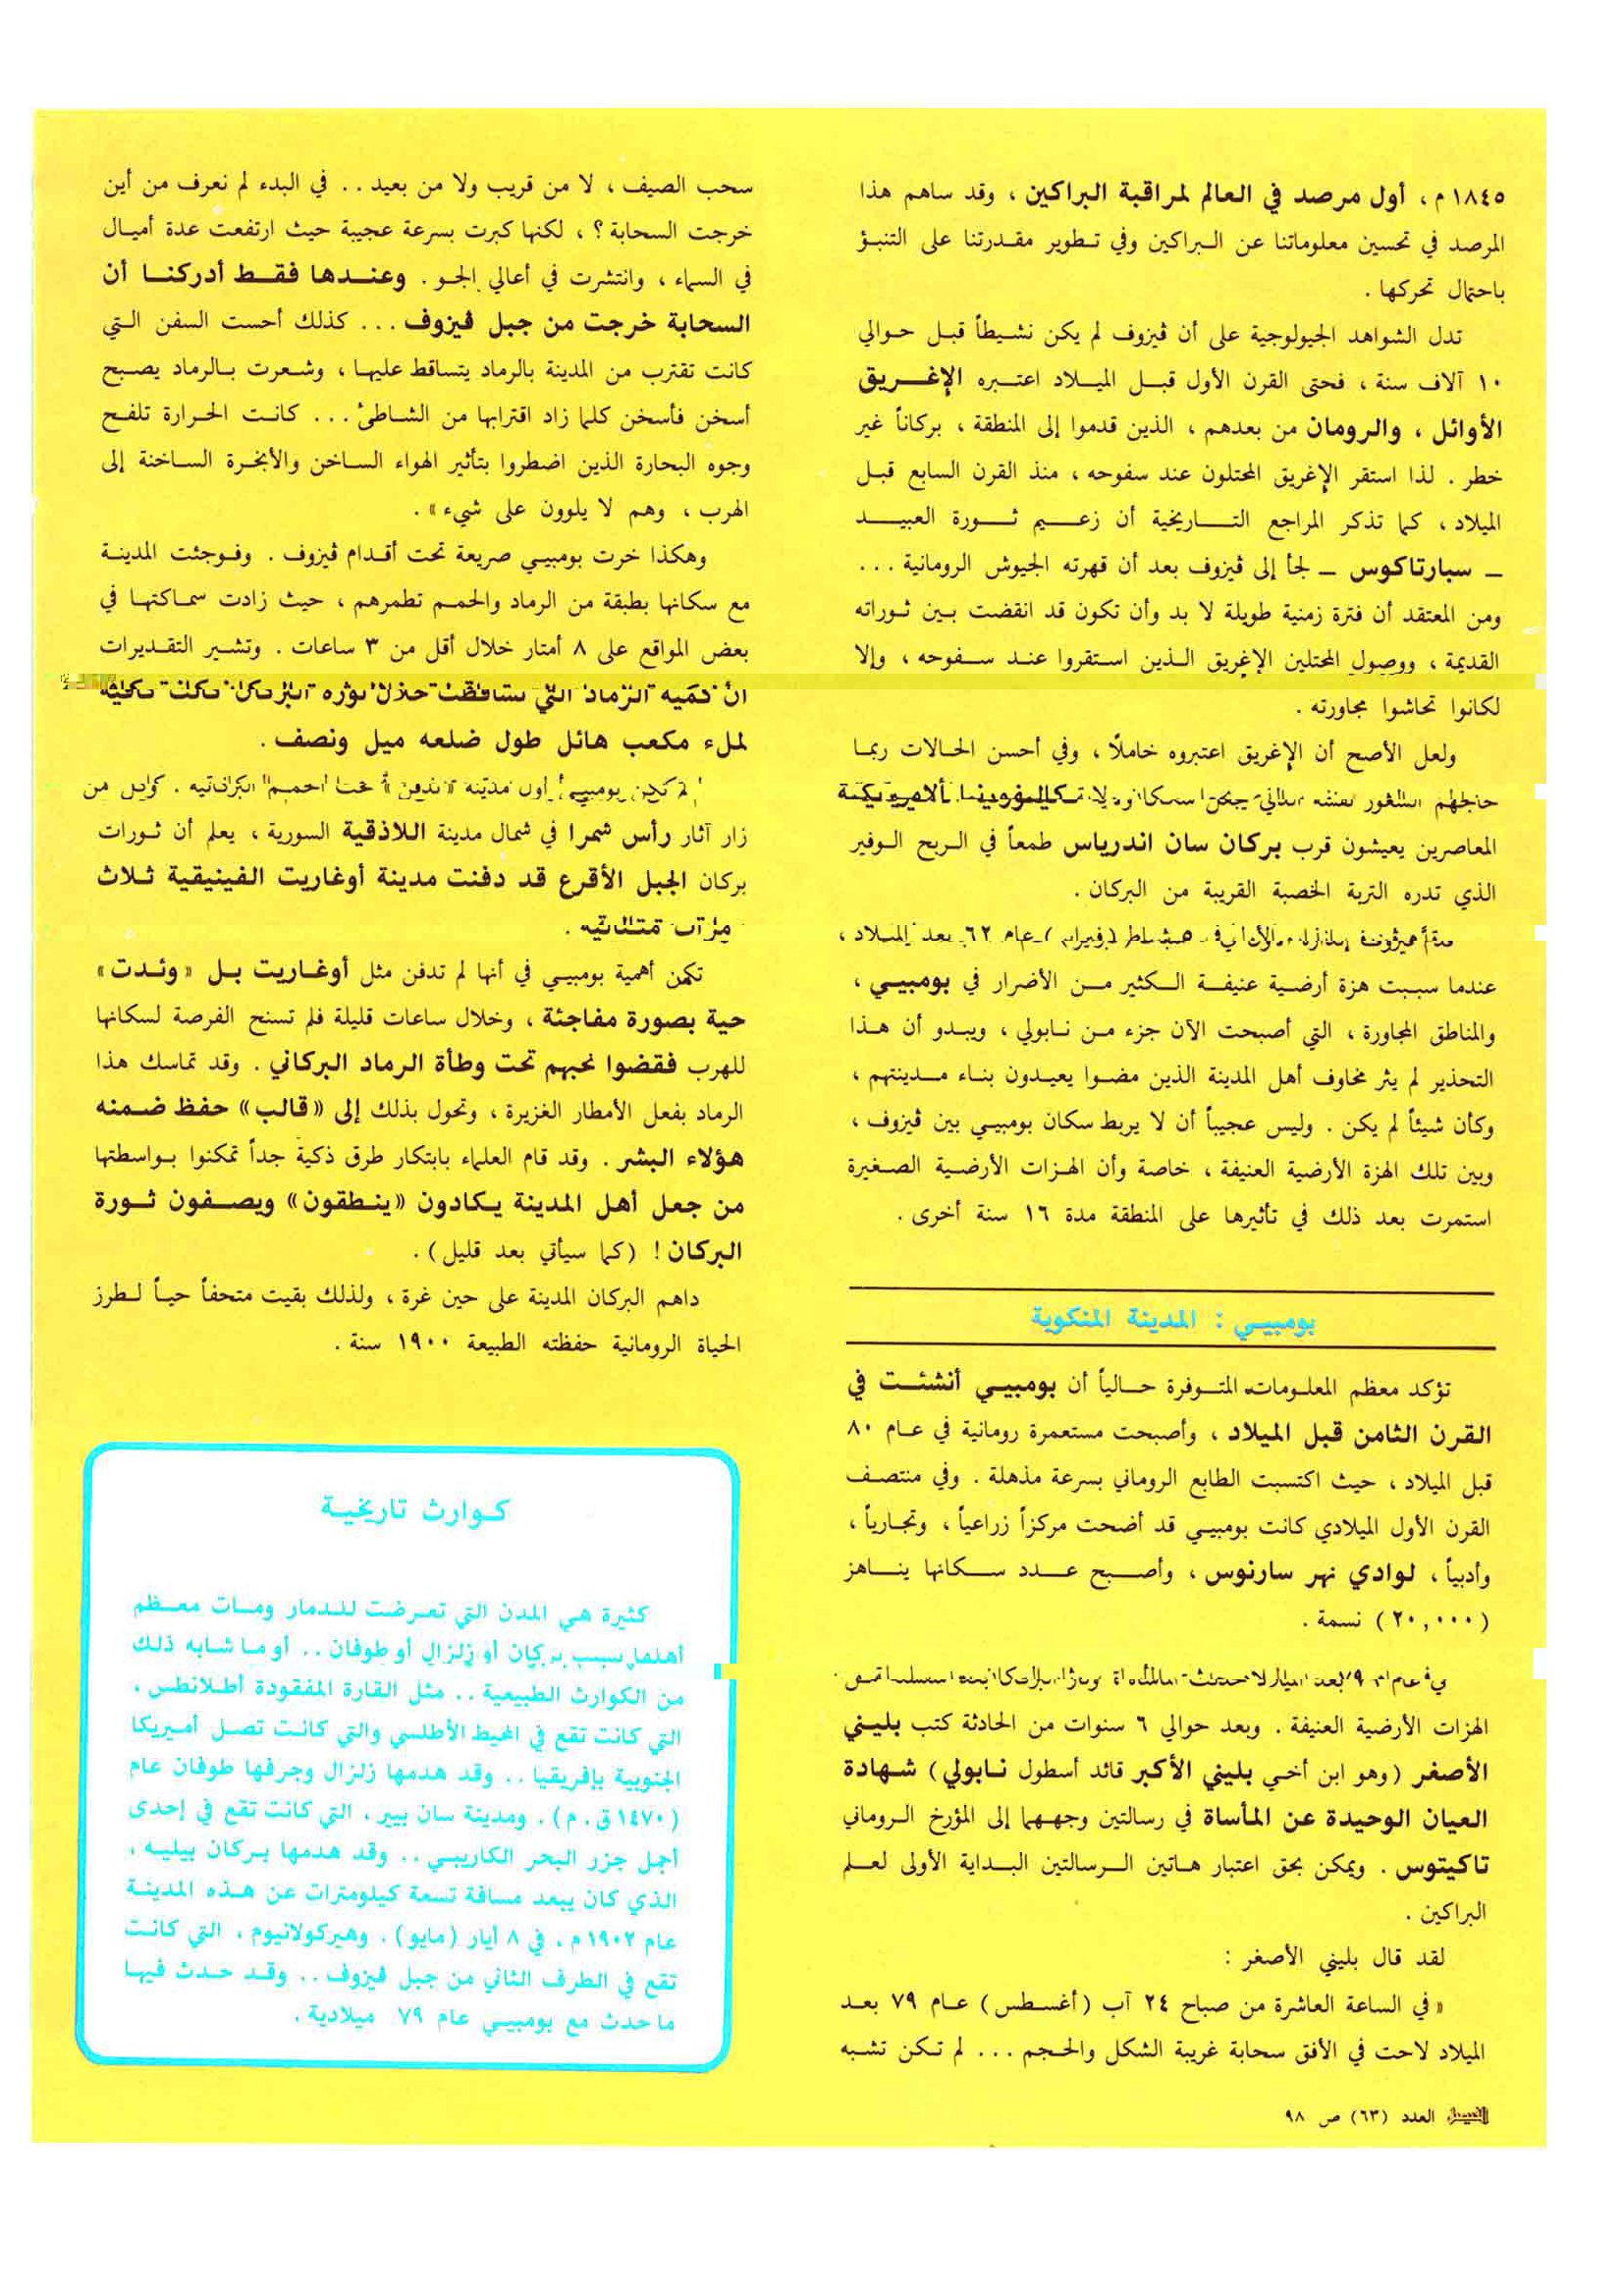 ١٨٤٥ م ، أول مرصد في العالم لمراقبة البراكين ، وقد ساهم هذا
المرصد في تحسين معلوماتنا عن البراكين وفي تطوير مقدرتنا على التنبؤ
باحتمال تحركها .
تدل الشواهد الجيولوجية على أن ڤيزوف لم يكن نشيطاً قبل حوالي
١٠ آلاف سنة ، فحتى القرن الأول قبل الميلاد اعتبره الإغريق
الأوائل ، والرومان من بعدهم ، الذين قدموا إلى المنطقة ، بركاناً غير
خطر . لذا استقر الإغريق المحتلون عند سفوحه ، منذ القرن السابع قبل
الميلاد ، كما تذكر المراجع التاريخية أن زعيم ثورة العبيد
ـ سبارتاكوس ـ لجأ إلى ڤيزوف بعد أن قهرته الجيوش الرومانية ...
ومن المعتقد أن فترة زمنية طويلة لا بد وأن تكون قد انقضت بين ثوراته
القديمة ، ووصول المحتلين الإغريق الذين استقروا عند سفوحه ، وإلا
لكانوا تحاشوا مجاورته .
ولعل الأصح أن الإغريق اعتبروه خاملاً ، وفي أحسن الحالات ربما
المعاصرين يعيشون قرب بركان سان اندرياس طمعاً في الربح الوفير
الذي تدره التربة الخصبة القريبة من البركان .
عام ٦٢ بعد الميلاد ،
عندما سببت هزة أرضية عنيفة الكثير من الأضرار في بومبيي ،
والمناطق المجاورة ، التي أصبحت الآن جزء من نابولي ، ويبدو أن هذا
التحذير لم يثر مخاوف أهل المدينة الذين مضوا يعيدون بناء مدينتهم ،
وكأن شيئاً لم يكن . وليس عجيباً أن لا يربط سكان بومبيي بين ڤيزوف ،
وبين تلك الهزة الأرضية العنيفة ، خاصة وأن الهزات الأرضية الصغيرة
استمرت بعد ذلك في تأثيرها على المنطقة مدة ١٦ سنة أخرى .
بومبيي : المدينة المنكوبة
تؤكد معظم المعلومات المتوفرة حالياً أن بومبيي أنشئت في
القرن الثامن قبل الميلاد ، وأصبحت مستعمرة رومانية في عام ٨٠
قبل الميلاد ، حيث اكتسبت الطابع الروماني بسرعة مذهلة . وفي منتصف
القرن الأول الميلادي كانت بومبيي قد أضحت مركزاً زراعياً ، وتجارياً ،
وأدبياً ، لوادي نهر سارنوس ، وأصبح عدد سكانها يناهز
(٢٠,٠٠٠) نسمة .
الهزات الأرضية العنيفة . وبعد حوالي ٦ سنوات من الحادثة كتب بليني
الأصغر (وهو ابن أخي بليني الأكبر قائد أسطول نابولي) شهادة
العيان الوحيدة عن المأساة في رسالتين وجههما إلى المؤرخ الروماني
تاكيتوس . ويمكن بحق اعتبار هاتين الرسالتين البداية الأولى لعلم
البراكين .
لقد قال بليني الأصغر :
« في الساعة العاشرة من صباح ٢٤ آب (أغسطس) عام ٧٩ بعد
الميلاد لاحت في الأفق سحابة غريبة الشكل والحجم ... لم تكن تشبه
سحب الصيف ، لا من قريب ولا من بعيد .. في البدء لم نعرف من أين
خرجت السحابة ؟ ، لكنها كبرت بسرعة عجيبة حيث ارتفعت عدة أميال
في السماء ، وانتشرت في أعالي الجو . وعندها فقط أدركنا أن
السحابة خرجت من جبل ڤيزوف ... كذلك أحست السفن التي
كانت تقترب من المدينة بالرماد يتساقط عليها ، وشعرت بالرماد يصبح
أسخن فأسخن كلما زاد اقترابها من الشاطئ ... كانت الحرارة تلفح
وجوه البحارة الذين اضطروا بتأثير الهواء الساخن والأبخرة الساخنة إلى
الهرب ، وهم لا يلوون على شيء » .
وهكذا خرت بومبيي صريعة تحت أقدام ڤيزوف . وفوجئت المدينة
مع سكانها بطبقة من الرماد والحمم تطمرهم ، حيث زادت سماكتها في
بعض المواقع على ٨ أمتار خلال أقل من ٣ ساعات . وتشير التقديرات
لملء مكعب هائل طول ضلعه ميل ونصف .
زار آثار رأس شمرا في شمال مدينة اللاذقية السورية ، يعلم أن ثورات
بركان الجبل الأقرع قد دفنت مدينة أوغاريت الفينيقية ثلاث
تكمن أهمية بومبيي في أنها لم تدفن مثل أوغاريت بل «وئدت»
حية بصورة مفاجئة ، وخلال ساعات قليلة فلم تسنح الفرصة لسكانها
للهرب فقضوا نحبهم تحت وطأة الرماد البركاني . وقد تماسك هذا
الرماد بفعل الأمطار الغزيرة ، وتحول بذلك إلى «قالب» حفظ ضمنه
هؤلاء البشر . وقد قام العلماء بابتكار طرق ذكية جداً تمكنوا بواسطتها
من جعل أهل المدينة يكادون «ينطقون» ويصفون ثورة
البركان ! (كما سيأتي بعد قليل) .
داهم البركان المدينة على حين غرة ، ولذلك بقيت متحفاً حياً لطرز
الحياة الرومانية حفظته الطبيعة ١٩٠٠ سنة .
كوارث تاريخية
كثيرة هي المدن التي تعرضت للدمار ومات معظم
أهلها بسبب بركان أو زلزال أو طوفان .. أو ما شابه ذلك
من الكوارث الطبيعية .. مثل القارة المفقودة أطلانطس ،
التي كانت تقع في المحيط الأطلسي والتي كانت تصل أمريكا
الجنوبية بإفريقيا .. وقد هدمها زلزال وجرفها طوفان عام
(١٤٧٠ ق . م) . ومدينة سان بيير ، التي كانت تقع في إحدى
أجمل جزر البحر الكاريبي .. وقد هدمها بركان بيليه ،
الذي كان يبعد مسافة تسعة كيلومترات عن هذه المدينة
عام ١٩٠٢ م ، في ٨ أيار (مايو) . وهيركولانيوم ، التي كانت
تقع في الطرف الثاني من جبل ڤيزوف .. وقد حدث فيها
ما حدث مع بومبيي عام ٧٩ ميلادية .
الفيصل العدد (٦٣) ص ٩٨